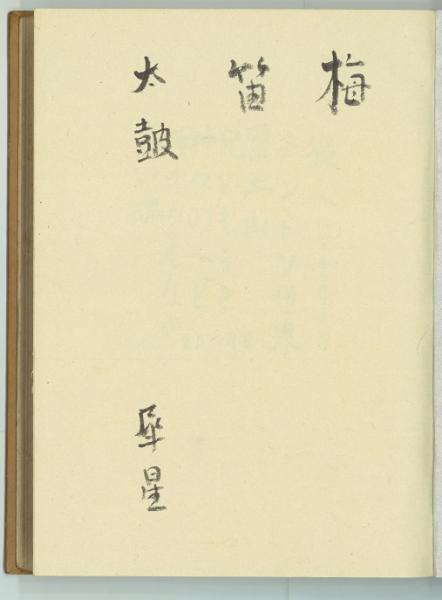 梅
笛
太皷
犀星